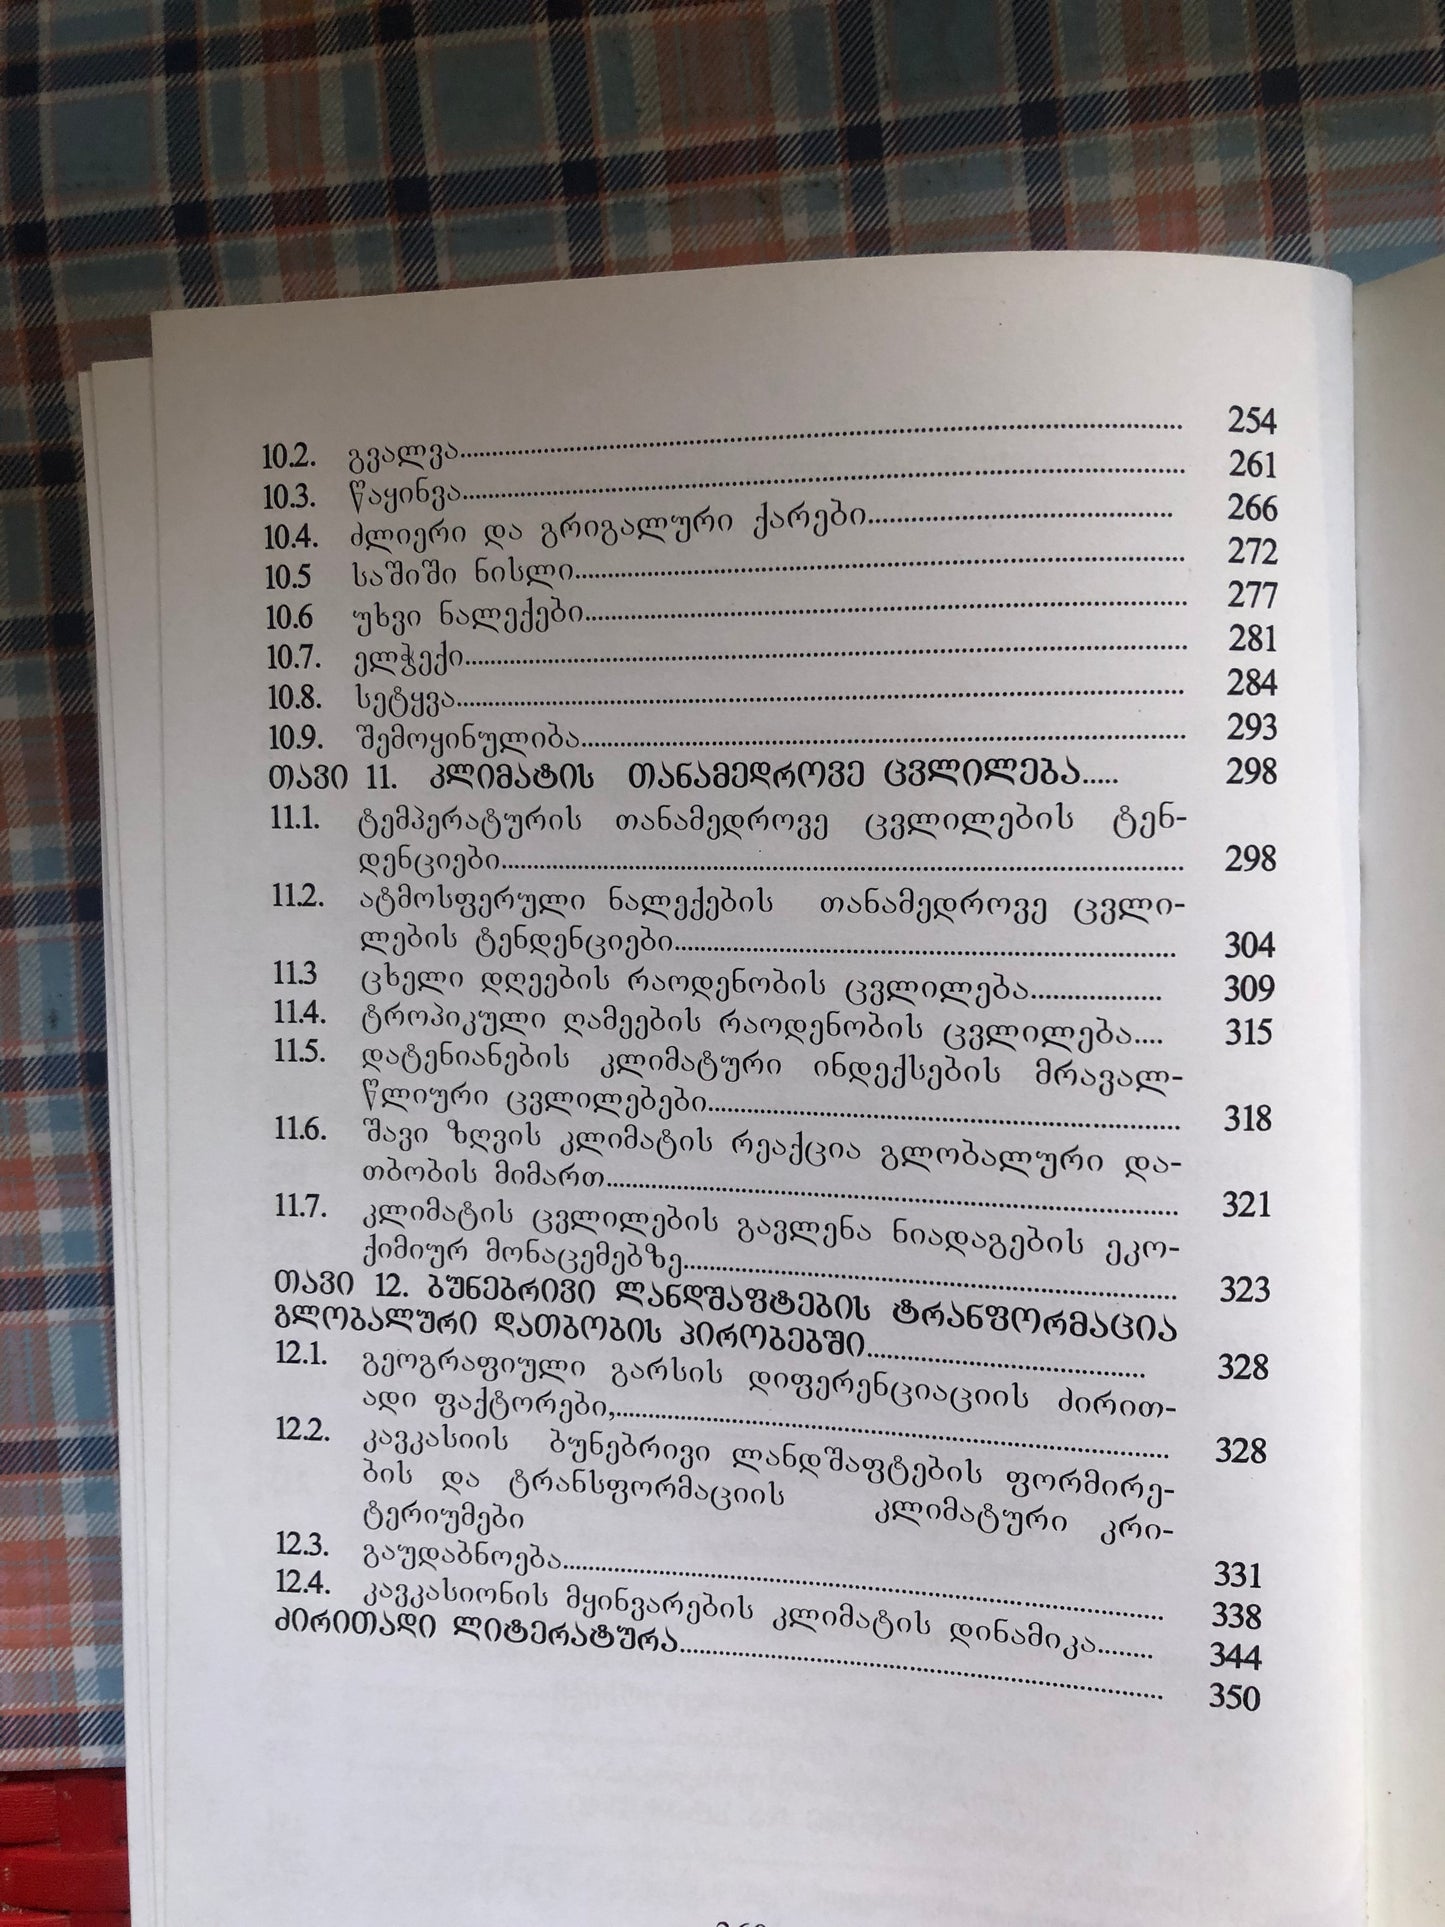 10.2. გვალვა........................ 254
10.3. წაყინვა........................ 261
10.4. ძლიერი და გრიგალური ქარები........................ 266
10.5 საშიში ნისლი........................ 272
10.6 უხვი ნალექები........................ 277
10.7. ელჭექი........................ 281
10.8. სეტყვა........................ 284
10.9. შემოყინულიბა........................ 293
თავი 11. კლიმატის თანამედროვე ცვლილება..... 298
11.1. ტემპერატურის თანამედროვე ცვლილების ტენ-
დენციები........................ 298
11.2. ატმოსფერული ნალექების თანამედროვე ცვლი-
ლების ტენდენციები........................ 304
11.3 ცხელი დღეების რაოდენობის ცვლილება................... 309
11.4. ტროპიკული ღამეების რაოდენობის ცვლილება.... 315
11.5. დატენიანების კლიმატური ინდექსების მრავალ-
წლიური ცვლილებები........................ 318
11.6. შავი ზღვის კლიმატის რეაქცია გლობალური და-
თბობის მიმართ........................ 321
11.7. კლიმატის ცვლილების გავლენა ნიადაგების ეკო-
ქიმიურ მონაცემებზე........................ 323
თავი 12. ბუნებრივი ლანდშაფტების ტრანფორმაცია
გლობალური დათბობის პირობებში........................ 328
12.1. გეოგრაფიული გარსის დიფერენციაციის ძირით-
ადი ფაქტორები,........................ 328
12.2. კავკასიის ბუნებრივი ლანდშაფტების ფორმირე-
ბის და ტრანსფორმაციის კლიმატური კრი-
ტერიუმები 331
12.3. გაუდაბნოება........................ 338
12.4. კავკასიონის მყინვარების კლიმატის დინამიკა........ 344
ძირითადი ლიტერატურა........................ 350